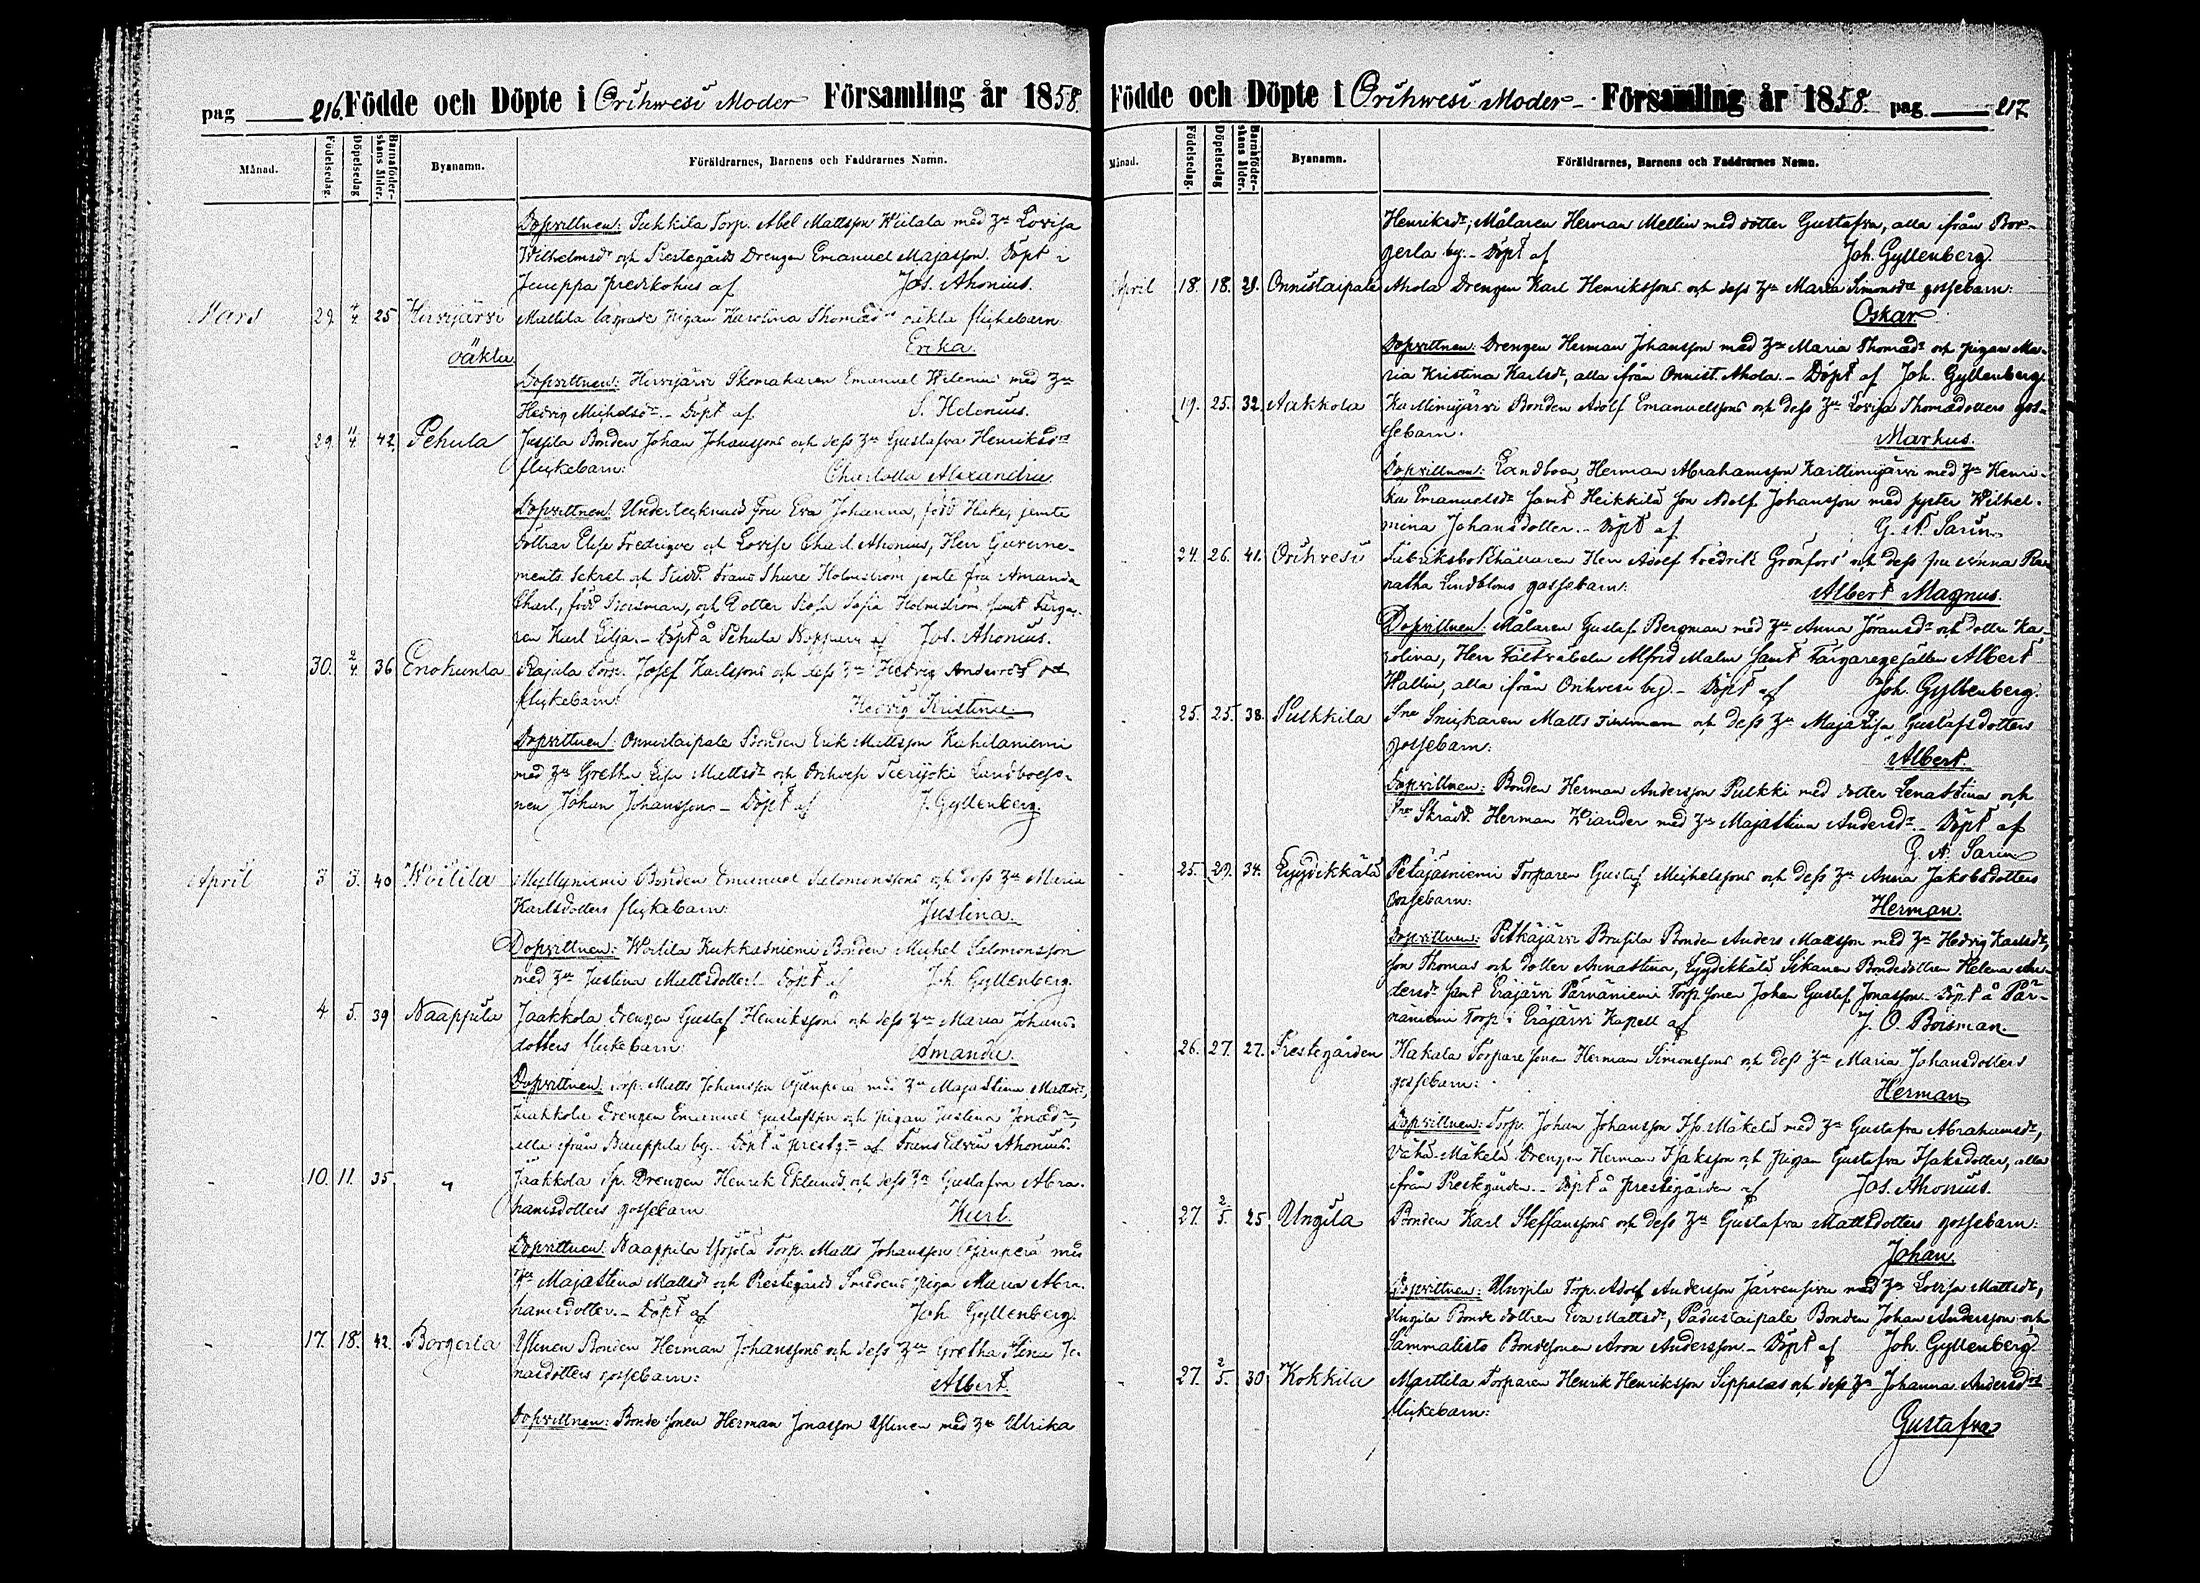 pag 216. Födde och Döpte i Orihwesi Moder Församling år 1858.
Månad. Födelsedag. Döpelsedag Barnaföderskans ålder. Byanamn. Föräldrarnes, Barnens och Faddrarnes Namn.
Dopvittnen: Torp. Abel Mattsson Wiitala med Hu Lovisa
Wilhelmsdr och Prestegårds Drengen Emanuel Majasson. Döpt i
predikohus af Jos. Ahonius.
Mars 29. 4/4 25 Hirvijärvi Mattila pigan Karolina Thomasdrs oäkta flickebarn:
oäkta Erika.
Dopvittnen: Hirvijärvi Skomakaren Emanuel Wilenius med Hu
Hedvig Michelsdr. - Döpt af S. Helenius.
- 29. 11/4 42 Pehula Jussila Bonden Johan Johanssons och dess Hu Gustafva Henriksdrs
flickebarn: Charlotta Alexandra
Dopvittnen: Undertecknad Fru Eva Johanna, född Huke, jemte
döttrar Elise Fredrique och Lovise Charl. Ahonius, Herr Guverne-
ments Sekret. och Ridd. Frans Thure Holmström jemte fru Amanda
Charl., född och Dotter Rosa Sofia Holmström samt Färga-
ren Karl Lilja. - Döpt å Pehula af Jos. Ahonius.
- 30. 2/4 36 Enokunta Rajala Torp. Josef Karlssons och dess Hu Hedvig Andersdrs
flickebarn: Hedvig Kristina
Dopvittnen: Onnistaipale Bonden Erik Mattsson Kuhilaniemi
med Hu Gretha Lisa Mattsdr och Orihvesi Landboeso-
nen Johan Johansson. - Döpt af J. Gyllenberg.
April 3. 3. 40 Woitila Myllyniemi Bonden Emanuel Salomonssons och dess Hu Maria
Karlsdotters flickebarn: Justina.
Dopvittnen: Woitila Kukkasniemi Bonden Michel Salomonsson
med Hu Justina Mattsdotter. Döpt af Joh. Gyllenberg.
- 4 5. 39 Naappila Jaakkola Drengen Gustaf Henrikssons och dess Hu Maria Johans-
dotters flickebarn: Amanda.
Dopvittnen: Torp. Matts Johansson Ojanperä med Hu Majastina Mattsdr,
Jaakkola Drengen Emanuel Gustafsson och pigan Justina Jonædr,
alla ifrån Naappila by. Döpt å prestg. af Frans Edvin Ahonius.
- 10. 11. 35 " Jaakkola Sp. Drengen Henrik Eklund och dess Hu Gustafva Abra-
hamsdotters gossebarn Karl.
Dopvittnen: Naappila Yrjölä Torp. Matts Johansson Ojanperä med
Hu Majastina Mattsdr och Prestegårds Smedens piga Maria Abra-
hamsdotter. - Döpt af Joh. Gyllenberg.
- 17. 18. 42. Borgerla Ylinen Bonden Herman Johanssons och dess Hu Gretha Stina Jo-
nasdotters gossebarn: Albert.
Dopvittnen: Bonde sonen Herman Jonasson Ylinen med Hu Ulrika
Födde och Döpte i Orihwesi Moder Församling år 1858. pag. 217
Månad. Födelsedag. Döpelsedag Barnaföderskans ålder. Byanamn. Föräldrarnes, Barnens och Faddrarnes Namn.
Henriksdr, Målaren Herman Mellin med dotter Gustafva, alla ifrån Bor-
gerla by. - Döpt af Joh. Gyllenberg.
April 18. 18. 29. Onnistaipale Ahola Drengen Karl Henrikssons och dess Hu Maria Simonsdrs gossebarn:
Oskar
Dopvittnen: Drengen Herman Johansson med Hu Maria Thomasdr och pigan Ma-
ria Kristina Karlsdr, alla ifrån Onnist. Ahola. - Döpt af Joh. Gyllenberg.
19. 25. 32. Aakkola Bonden Adolf Emanuelssons och dess Hu Lovisa Thomasdotters gos-
sebarn. Markus.
Dopvittnen: Landboen Herman Abrahamsson med Hu Henri-
ka Emanuelsdr samt Heikkilä son Adolf Johansson med syster Wilhel-
mina Johansdotter. - Döpt af G. A. Sarin
24. 26. 41. Orihvesi Fabriksbokhållaren Herr Adolf Fredrik Grönfors och dess fru Anna Re-
natha Lindbloms gossebarn: Albert Magnus.
Dopvittnen: Målaren Gustaf Bergman med Hu Anna Göransdr och dotter Ka-
rolina, Herr Fältväbeln Alfrid Malm samt Färgaregesällen Albert
Wallin, alla ifrån Orihvesi by. - Döpt af Joh. Gyllenberg.
25. 25. 38. Pulkkila Snickaren Matts och dess Hu Majalisa Gustafsdotters
gossebarn: Albert
Dopvittnen: Bonden Herman Andersson Pulkki med dotter Lenastina och
Skrädd. Herman Wiander med Hu Majastina Andersdr. - Döpt af
G. A. Sarin
- 25. 29. 34. Lyydikkälä Petäjäsniemi Torparen Gustaf Michelssons och dess Hu Anna Jakobsdotters
gossebarn: Herman.
Dopvittnen: Pitkäjärvi Brusila Bonden Anders Mattsson med Hu Hedvig Karlsdr,
son Thomas och dotter Annastina, Lyydikkälä Sikanen Bondedottren Helena An-
dersdr samt Eräjärvi Pärnäniemi Torp. sonen Johan Gustaf Jonasson. Döpt å Pär-
näniemi Torp i Eräjärvi Kapell af J. O. Boisman.
26. 27. 27. Prestegården Hakala Torpare sonen Herman Simonssons och dess Hu Maria Johansdotters
gossebarn: Herman
Dopvittnen: Torp. Johan Johansson Iso Mäkelä med Hu Gustafva Abrahamsdr,
Vähä-Mäkelä Drengen Herman Isaksson och Pigan Gustafva Isaksdotter, alla
ifrån Prestegården. - Döpt å prestegården af Jos. Ahonius.
27. 2/5. 25 Ungila Bonden Karl Steffanssons och dess Hu Gustafva Mattsdotters gossebarn:
Johan.
Dopvittnen: Torp. Adolf Andersson Järvensivu med Hu Lovisa Mattsdr,
Ungila Bonde dottren Eva Mattsdr, Padustaipale Bonden Johan Andersson och
Sammalisto Bondesonen Aron Andersson. - Döpt af Joh. Gyllenberg.
- 27. 2/5. 30 Kokkila Marttila Torparen Henrik Henriksson Seppäläs och dess Hu Johanna Andersdrs
flickebarn: Gustafva